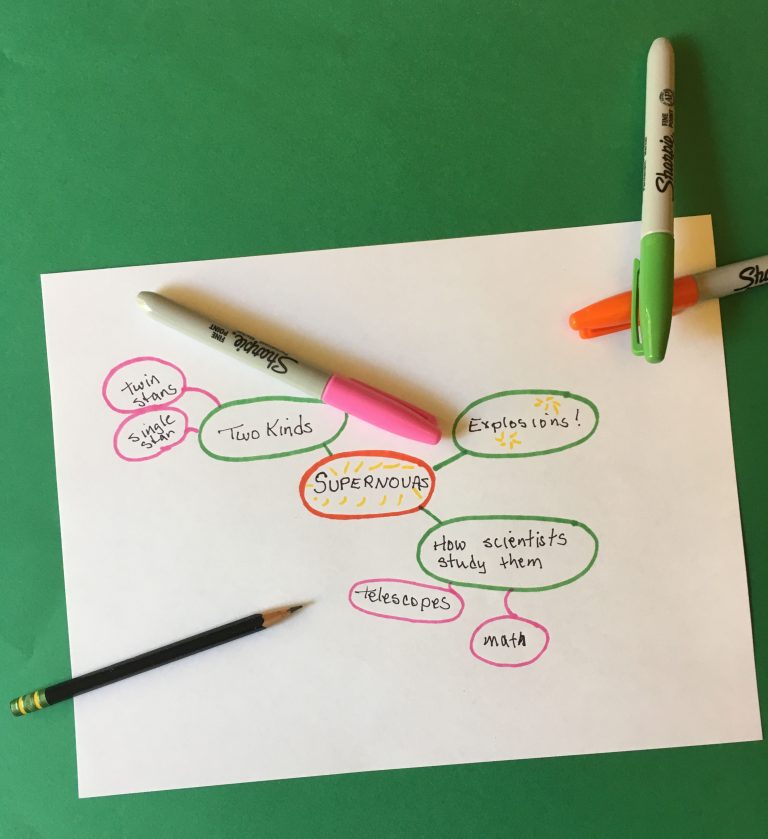 Sharpie
FINE
POINT
AP
Sha
Sharpie
FINE
POINT
twin
stars
single
star
Two Kinds
Explosions!
SUPERNOVAS
How scientists
study them
telescopes
math